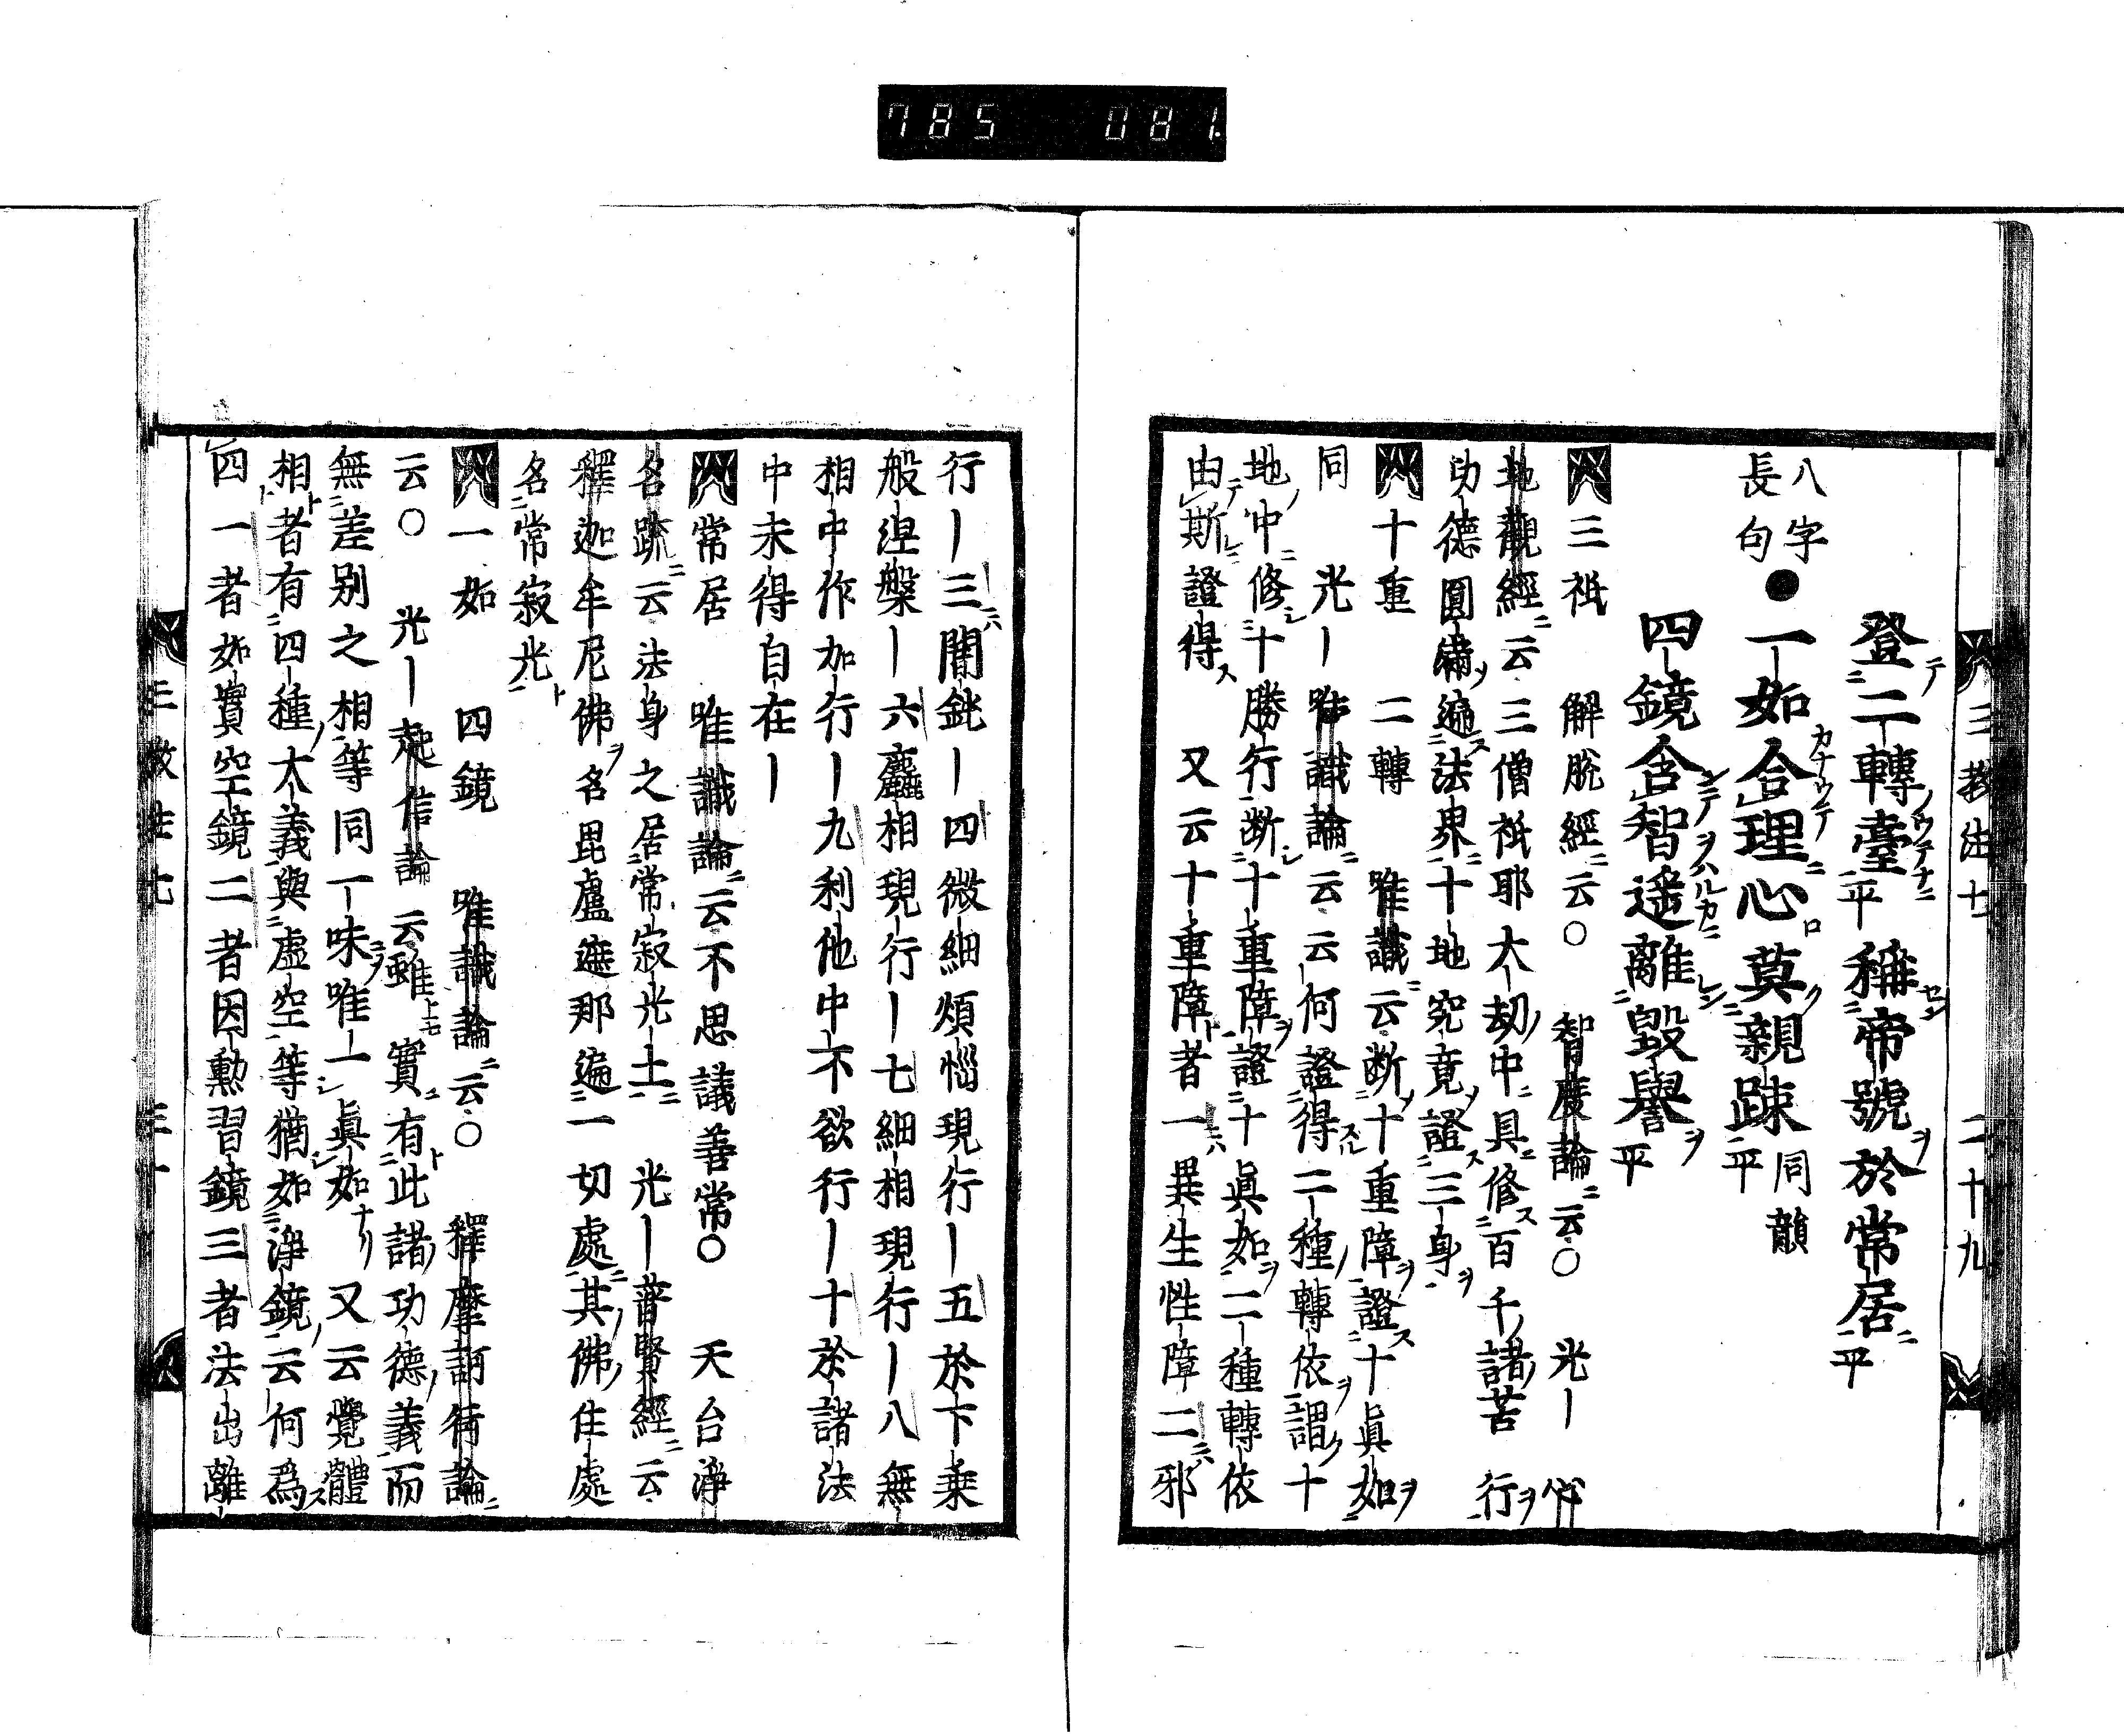 785 081
三教注七 二十九
登二轉臺平 稱帝號於常居平
八字
長句
●一如合理心莫親踈平同韻
四鏡含智遥離毀譽平
三祇 解脫經云○ 智度論云○ 光｜心
地觀經云三僧祇耶大劫中具修百千諸苦行
功德圓滿遍法界十地究竟證三身
十重 二轉 唯識云断十重障證十眞如
同 光｜唯識論云云何證得二種轉依謂十
地中修十勝行断十重障證十眞如二種轉依
由斯證得 又云十重障者一異生性障二邪
行｜三闇鈍｜四微細煩惱現行｜五於下乘
般涅槃｜六麤相現行｜七細相現行｜八無
相中作加行｜九利他中不欲行｜十於諸法
中未得自在｜
常居 唯識論云不思議善常○ 天台淨
名疏云法身之居常寂光土 光｜普賢經云
釋迦牟尼佛名毘盧遮那遍一切處其佛住處
名常寂光
一如 四鏡 唯識論云○ 釋摩訶衍論
云○ 光｜起信論云雖實有此諸功德義而
無差別之相等同一味唯一眞如 又云覺體
相者有四種大義與虛空等猶如淨鏡云何爲
四一者如實空鏡二者因熏習鏡三者法出離
三教注七 三十